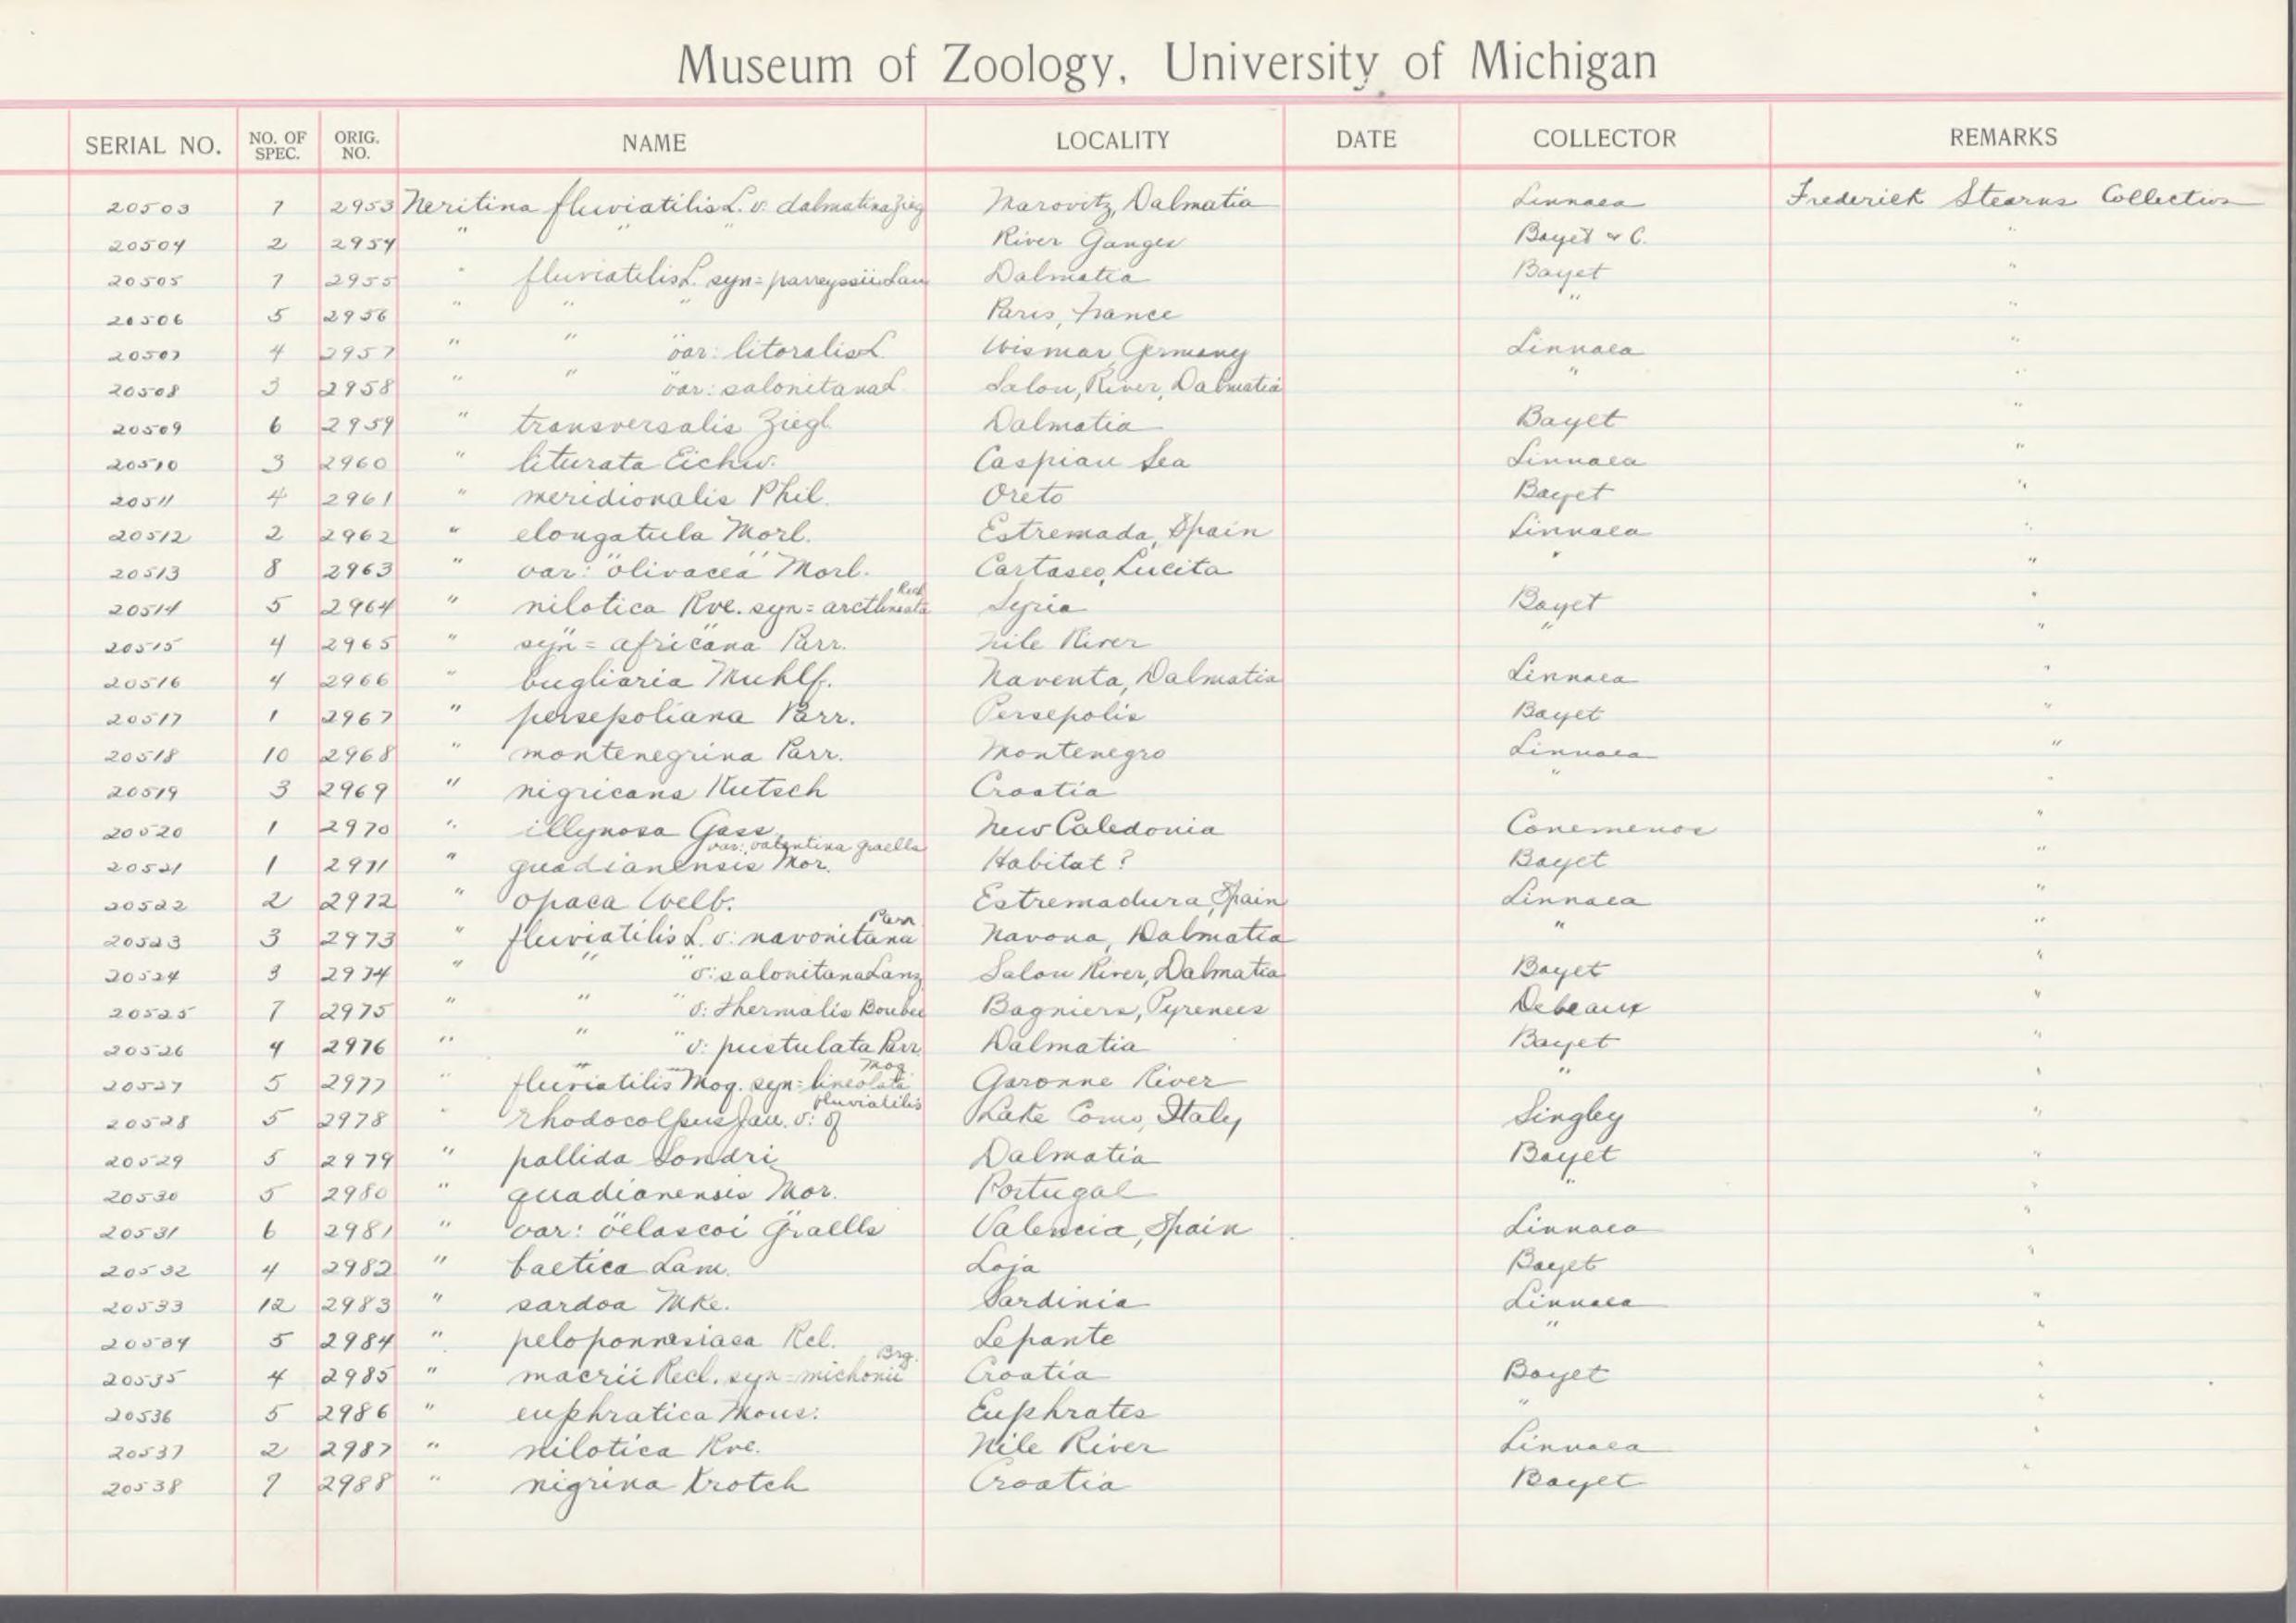 Museum of Zoology, University of Michigan
SERIAL NO. NO. OF SPEC. ORIG. NO. NAME LOCALITY DATE COLLECTOR REMARKS
20503 7 2953 Neritina fluviatilis L. v. dalmatina Zieg Marovitz, Dalmatia Linnaea Frederick Stearns Collection
20504 2 2954 " " " River Ganges Bayet & C. "
20505 7 2955 " fluviatilis L. syn = parreyssii Lau Dalmatia Bayet "
20506 5 2956 " " " Paris, France " "
20507 4 2957 " " var: litoralis L. Wismar, Germany Linnaea "
20508 3 2958 " " var: salonitana L. Salon, River, Dalmatia " "
20509 6 2959 " transversalis Ziegl. Dalmatia Bayet "
20510 3 2960 " liturata Eichw. Caspian Sea Linnaea "
20511 4 2961 " meridionalis Phil. Oreto Bayet "
20512 2 2962 " elongatula Morl. Estremada, Spain Linnaea "
20513 8 2963 " var: " olivacea " Morl. Cartaseo, Lucita " "
20514 5 2964 " nilotica Rve. syn = arctlineata Recl Syria Bayet "
20515 4 2965 " " syn = africana Parr. Nile River " "
20516 4 2966 " bugliaria Muhlf. Naventa, Dalmatia Linnaea "
20517 1 2967 " persepoliana Parr. Persepolis Bayet "
20518 10 2968 " montenegrina Parr. Montenegro Linnaea "
20519 3 2969 " nigricans Kutsch Croatia " "
20520 1 2970 " illynosa Gass. New Caledonia Conemenos "
20521 1 2971 " guadianensis Mor. var: valentina Graells Habitat? Bayet "
20522 2 2972 " opaca Welb. Estremadura, Spain Linnaea "
20523 3 2973 " fluviatilis L. v: navonitana Parr Navona, Dalmatia " "
20524 3 2974 " " v: salonitana Lanz Salon River, Dalmatia Bayet "
20525 7 2975 " " " v: thermalis Boubee Bagniers, Pyrenees Debeaux "
20526 4 2976 " " " v: pustulata Parr Dalmatia Bayet "
20527 5 2977 " fluviatilis Moq. syn = lineolata Moq Garonne River " "
20528 5 2978 " rhodocolpus Jan. v: of fluviatilis Lake Como, Italy Singley "
20529 5 2979 " pallida Sondri Dalmatia Bayet "
20530 5 2980 " guadianensis Mor. Portugal " "
20531 6 2981 " var: " velascoi Graells Valencia, Spain Linnaea "
20532 4 2982 " baetica Lam. Loja Bayet "
20533 12 2983 " sardoa Mke. Sardinia Linnaea "
20534 5 2984 " peloponnesiaca Rcl. Lepante " "
20535 4 2985 " macrii Recl. syn = michonii Brg. Croatia Bayet "
20536 5 2986 " euphratica Mous. Euphrates " "
20537 2 2987 " nilotica Rve. Nile River Linnaea "
20538 7 2988 " nigrina Crotch Croatia Bayet "